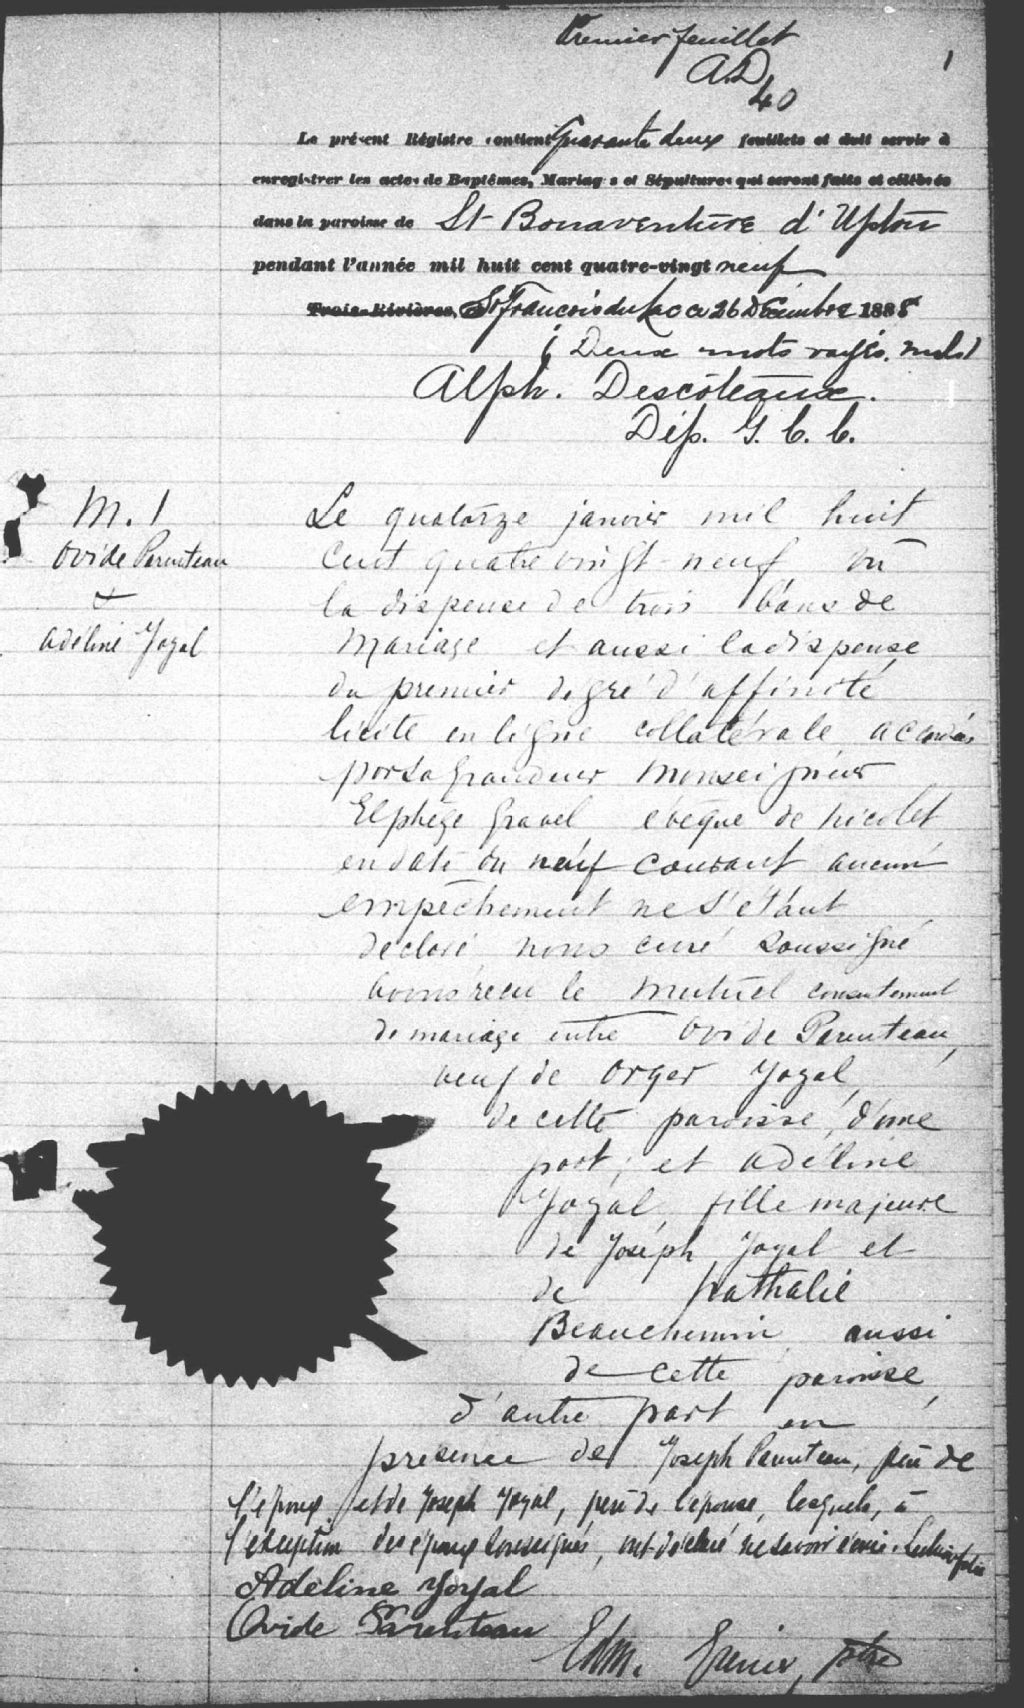 Premier feuillet
A.D
40
1
Le présent Régistre contient Quarante deux feuillets et doit servir à
enregistrer les actes de Baptêmes, Mariages et Sépultures qui seront faits et célébrés
dans la paroisse de St Bonaventure d'Upton
pendant l'année mil huit cent quatre-vingt neuf
Trois-Rivières, St François du Lac ce 26 Décembre 1888
(Deux mots rayés nuls)
Alph. Descôteaux.
Dép. G. C. C.
M. 1
Ovide Parenteau
+
Adéline Joyal
Le quatorze janvier mil huit
cent quatre vingt-neuf vu
la dispense de trois bans de
mariage et aussi la dispense
du premier degré d'affinité
licite en ligne collatérale accordées
par Sa Grandeur Monseigneur
Elphège Gravel évêque de Nicolet
en date du neuf courant aucun
empêchement ne s'étant
déclaré nous curé soussigné
avons reçu le mutuel consentement
de mariage entre Ovide Parenteau,
veuf de Joyal,
de cette paroisse, d'une
part; et Adéline
Joyal fille majeure
de Joseph Joyal et
de Nathalie
Beauchemin aussi
de cette paroisse,
d'autre part en
présence de Joseph Parenteau, père de
l'époux et de Joseph Joyal, père de l'épouse, lesquels, à
l'exception des époux soussignés, ont déclaré ne savoir signer. Lecture faite
Adéline Joyal
Ovide Parenteau
Edm. Grenier, ptre